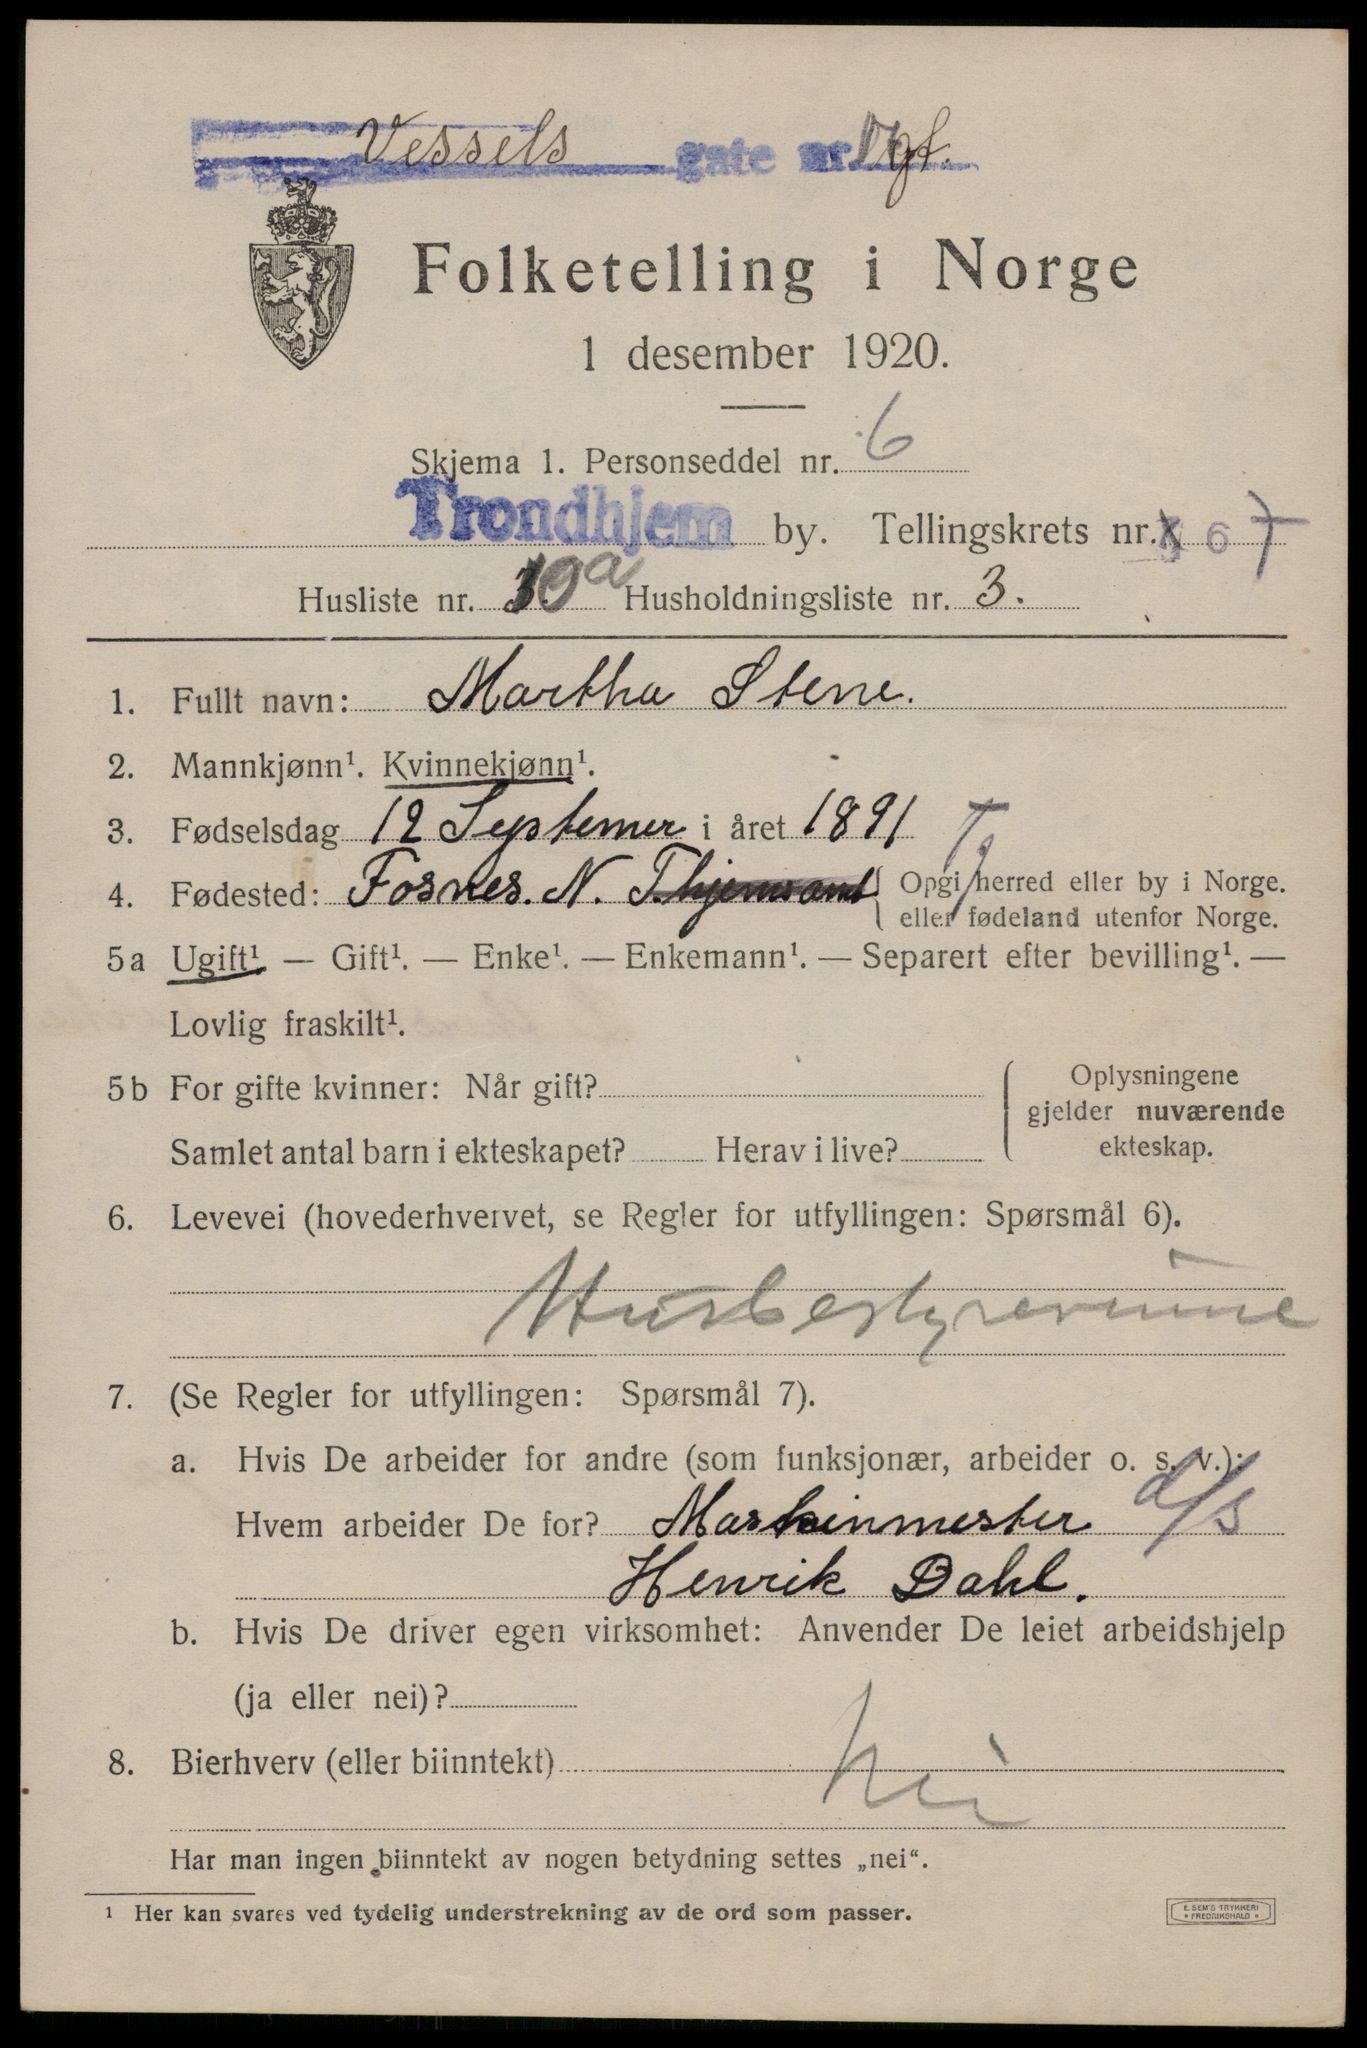 Vessels gate nr. gf.
Folketelling i Norge
1 desember 1920.
Skjema 1. Personseddel nr. 6
Trondhjem by. Tellingskrets nr. 67
Husliste nr. 10a Husholdningsliste nr. 3.
1. Fullt navn: Martha Stene.
2. Mannkjønn¹. Kvinnekjønn¹.
3. Fødselsdag 12 Systemer i året 1891
4. Fødested: Fosnes. N. T.hjems amt Opgi herred eller by i Norge.
eller fødeland utenfor Norge.
5a Ugift¹. — Gift¹. — Enke¹. — Enkemann¹. — Separert efter bevilling¹. —
Lovlig fraskilt¹.
5b For gifte kvinner: Når gift?
Samlet antal barn i ekteskapet? Herav i live?
Oplysningene
gjelder nuværende
ekteskap.
6. Levevei (hovederhvervet, se Regler for utfyllingen: Spørsmål 6).
Husbestyrerinne
7. (Se Regler for utfyllingen: Spørsmål 7).
a. Hvis De arbeider for andre (som funksjonær, arbeider o. s. v.):
Hvem arbeider De for? Maskinmester d/s
Henrik Dahl.
b. Hvis De driver egen virksomhet: Anvender De leiet arbeidshjelp
(ja eller nei)?
8. Bierhverv (eller biinntekt)
Nei
Har man ingen biinntekt av nogen betydning settes „nei“.
¹ Her kan svares ved tydelig understrekning av de ord som passer.
E. SEM'S TRYKKERI
• FREDRIKSHALD •